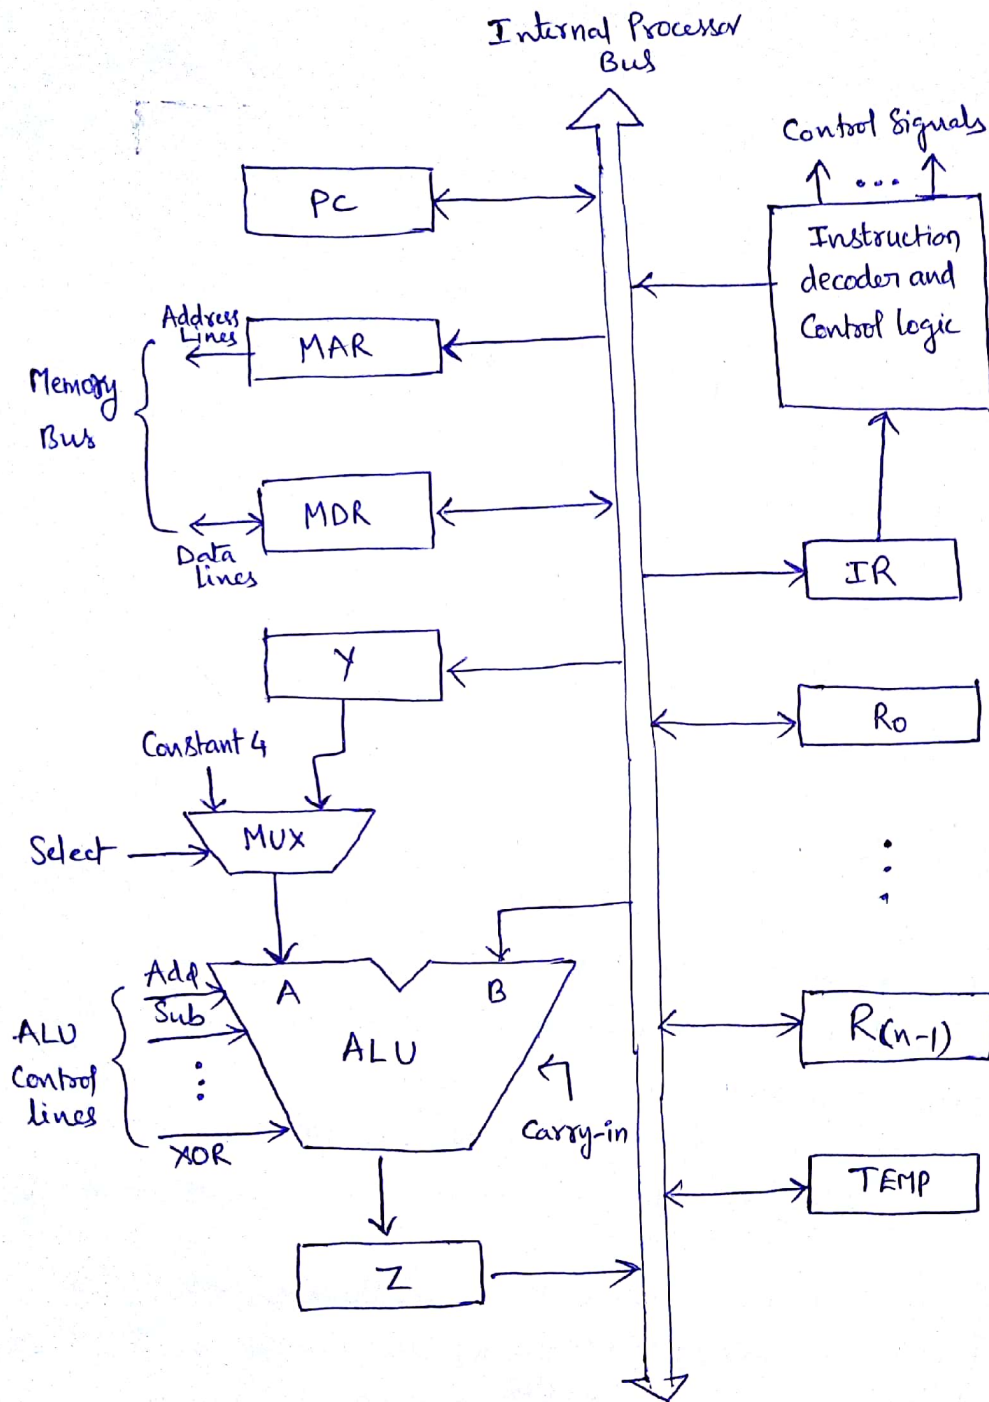 Internal Processor
Bus
Control Signals
...
PC
Instruction
decoder and
Control logic
Address
Lines
MAR
Memory
Bus
MDR
Data
lines
IR
Y
R0
Constant 4
MUX
Select
Add
A
B
Sub
ALU
ALU
Control
lines
R(n-1)
Carry-in
XOR
TEMP
Z